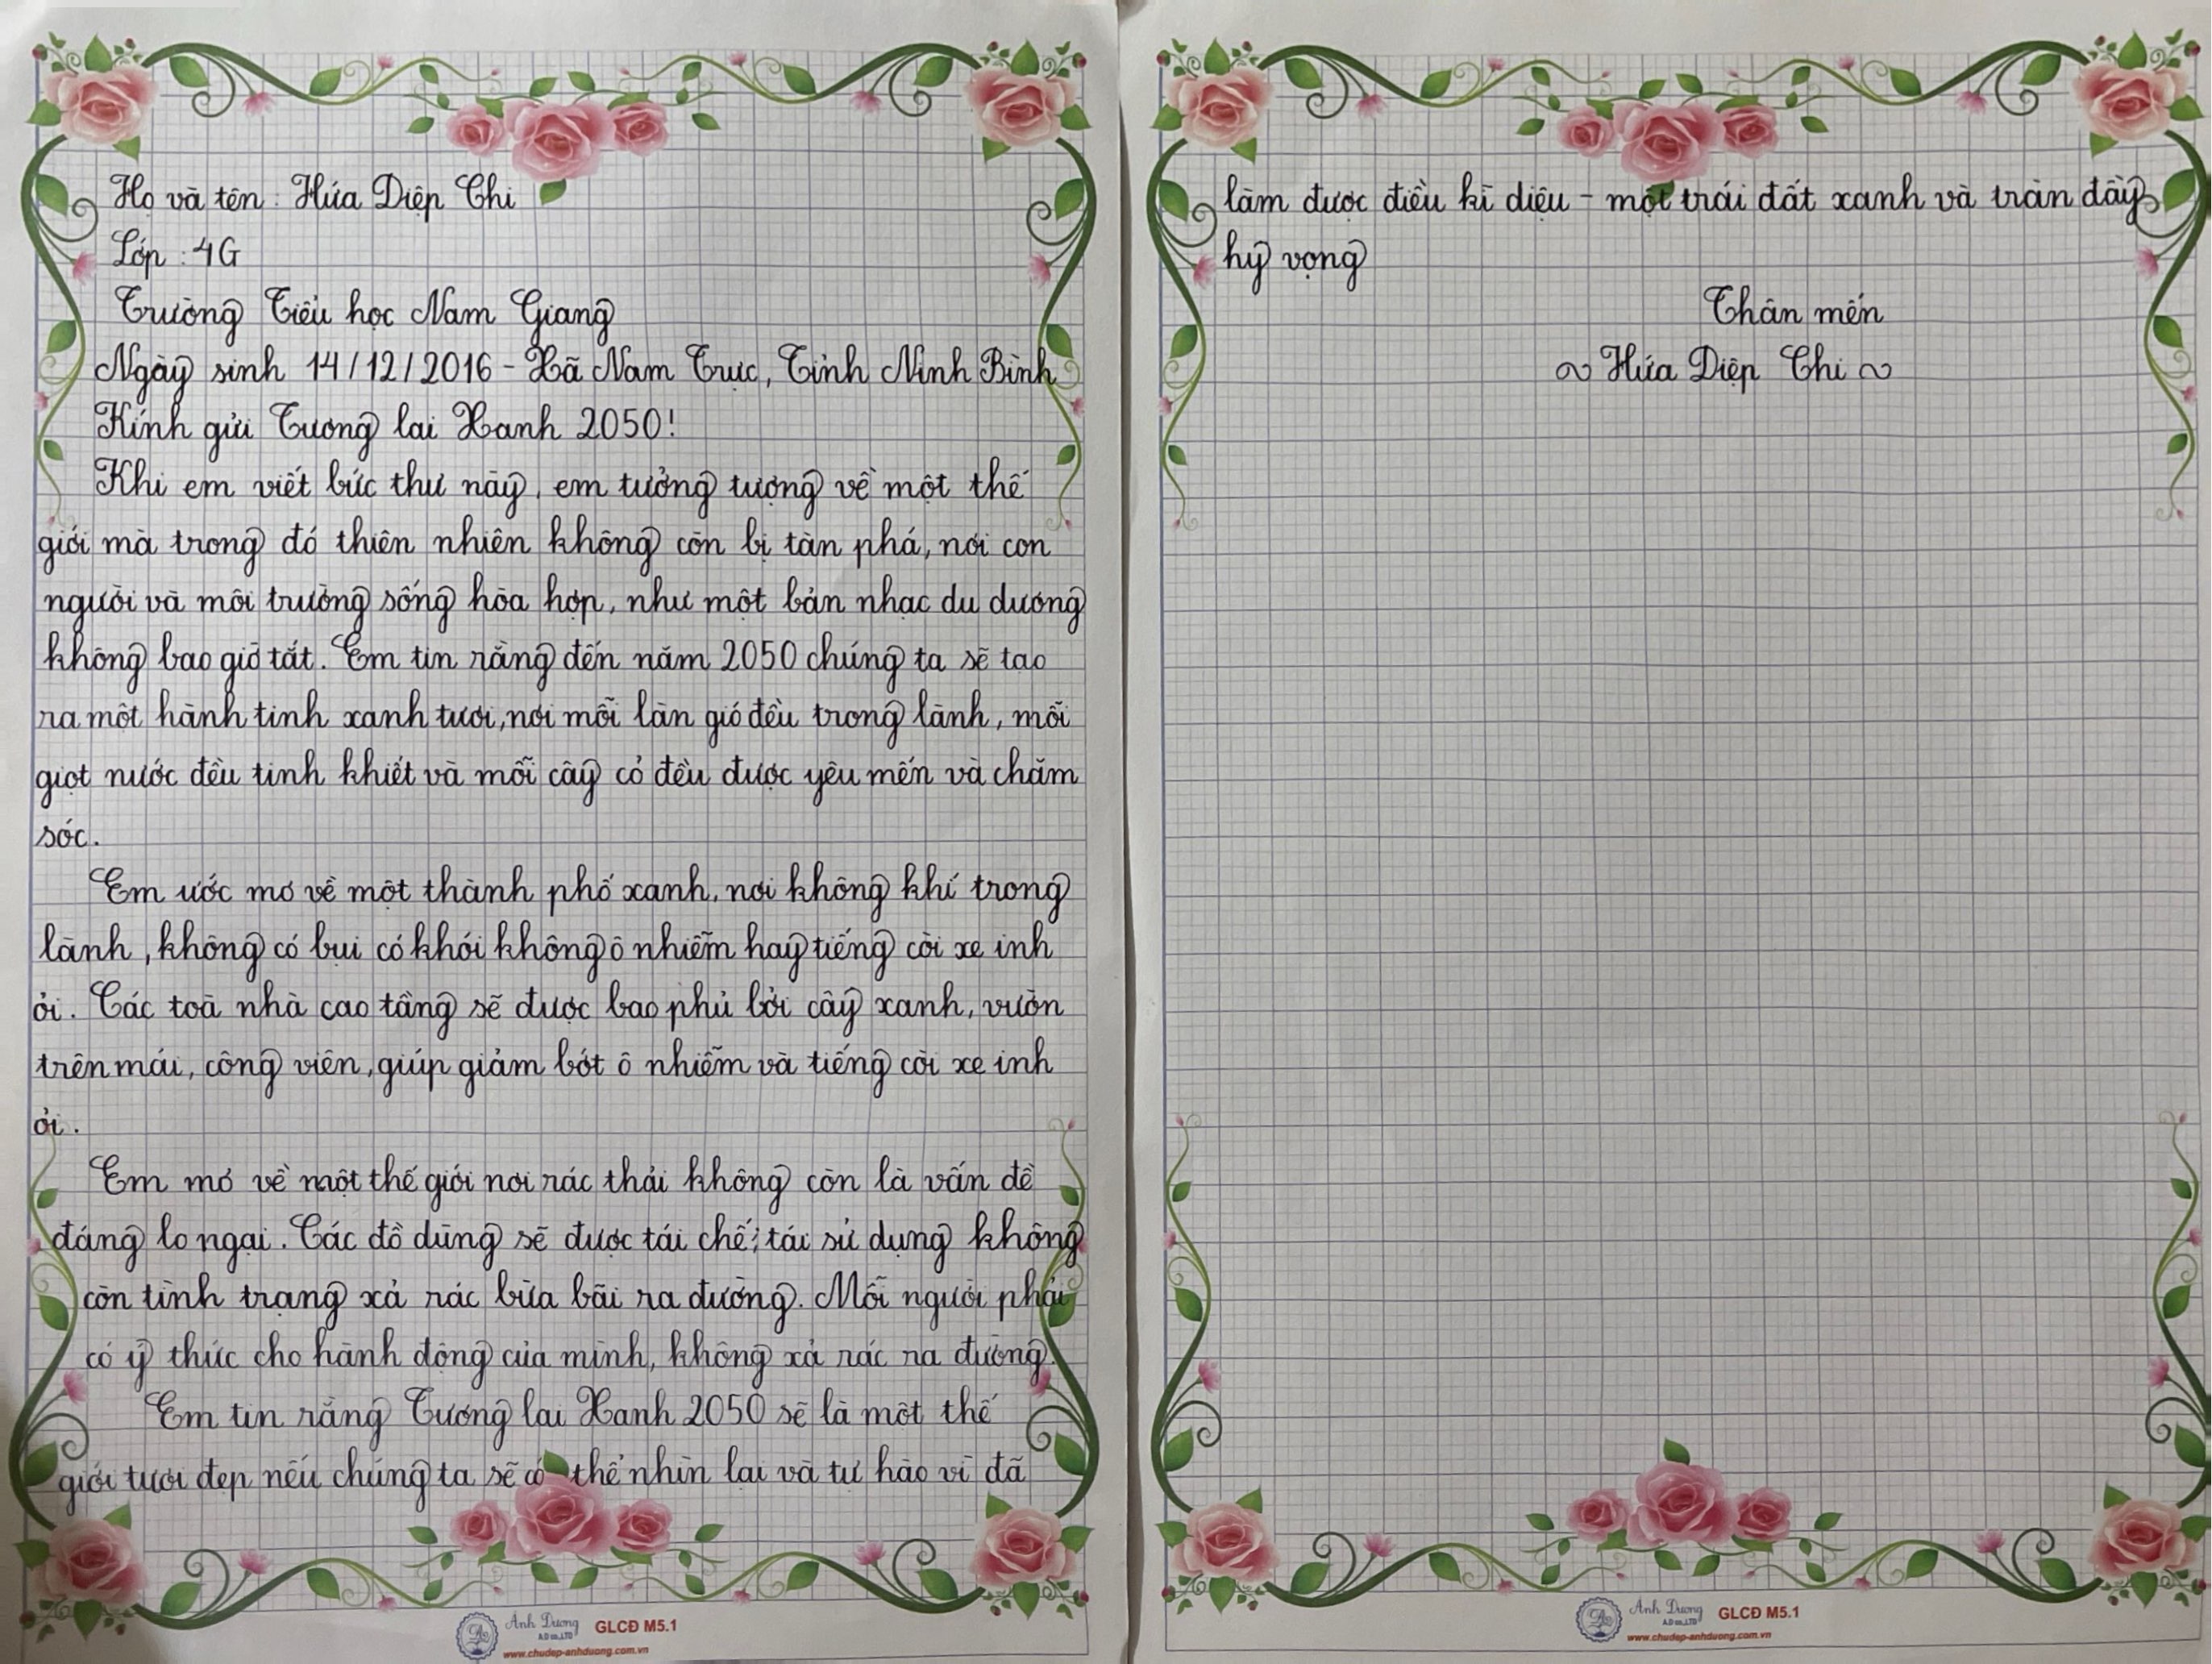 Họ và tên: Hứa Diệp Chi
Lớp: 4G
Trường Tiểu học Nam Giang
Ngày sinh 14/12/2016 - Xã Nam Trực, Tỉnh Ninh Bình
Kính gửi Tương lai Xanh 2050!
Khi em viết bức thư này, em tưởng tượng về một thế
giới mà trong đó thiên nhiên không còn bị tàn phá, nơi con
người và môi trường sống hòa hợp, như một bản nhạc du dương
không bao giờ tắt. Em tin rằng đến năm 2050 chúng ta sẽ tạo
ra một hành tinh xanh tươi, nơi mỗi làn gió đều trong lành, mỗi
giọt nước đều tinh khiết và mỗi cây cỏ đều được yêu mến và chăm
sóc.
Em ước mơ về một thành phố xanh, nơi không khí trong
lành, không có bụi có khói không ô nhiễm hay tiếng còi xe inh
ỏi. Các toà nhà cao tầng sẽ được bao phủ bởi cây xanh, vườn
trên mái, công viên, giúp giảm bớt ô nhiễm và tiếng còi xe inh
ỏi.
Em mơ về một thế giới nơi rác thải không còn là vấn đề
đáng lo ngại. Các đồ dùng sẽ được tái chế; tái sử dụng không
còn tình trạng xả rác bừa bãi ra đường. Mỗi người phải
có ý thức cho hành động của mình, không xả rác ra đường.
Em tin rằng Tương lai Xanh 2050 sẽ là một thế
giới tươi đẹp nếu chúng ta sẽ có thể nhìn lại và tự hào vì đã
Ánh Dương
A.D co.,LTD
GLCĐ M5.1
www.chudep-anhduong.com.vn
làm được điều kì diệu - một trái đất xanh và tràn đầy
hy vọng
Thân mến
~ Hứa Diệp Chi ~
Ánh Dương
A.D co.,LTD
GLCĐ M5.1
www.chudep-anhduong.com.vn